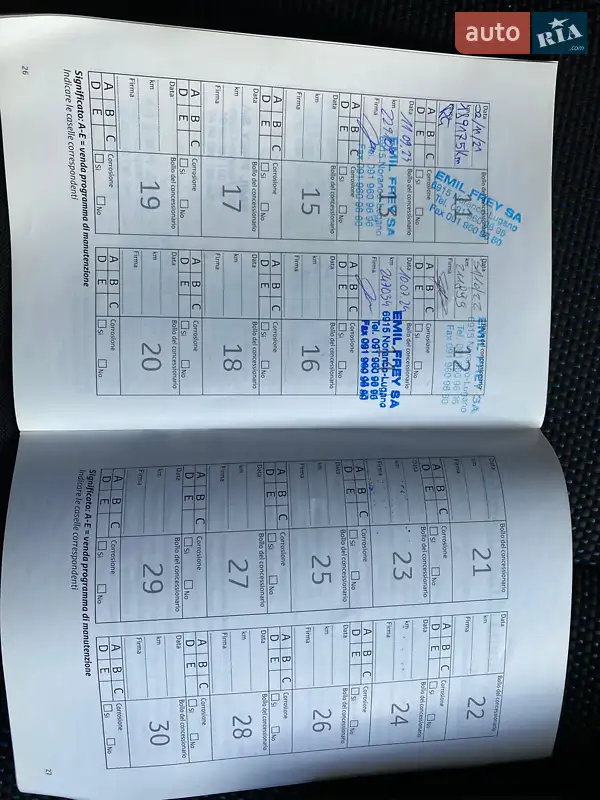 auto RIA .com
Data 22/11/21
Bollo del concessionario
km 189175km
Firma
11
A B C
D E
Corrosione
Si No
EMIL FREY SA
6915 Noranco-Lugano
Tel. 091 960 96 96
Fax 091 960 96 80
Data
Bollo del concessionario
km
Firma
12
A B C
D E
Corrosione
Si No
EMIL FREY SA
6915 Noranco-Lugano
Tel. 091 960 96 96
Fax 091 960 96 80
Data 11.09.23
Bollo del concessionario
km
Firma
13
A B C
D E
Corrosione
Si No
EMIL FREY SA
6915 Noranco-Lugano
Tel. 091 960 96 96
Fax 091 960 96 80
Data
Bollo del concessionario
km 247034
Firma
A B C
D E
Corrosione
Si No
EMIL FREY SA
6915 Noranco-Lugano
Tel. 091 960 96 96
Fax 091 960 96 80
Data
Bollo del concessionario
km
Firma
15
A B C
D E
Corrosione
Si No
Data
Bollo del concessionario
km
Firma
16
A B C
D E
Corrosione
Si No
Data
Bollo del concessionario
km
Firma
17
A B C
D E
Corrosione
Si No
Data
Bollo del concessionario
km
Firma
18
A B C
D E
Corrosione
Si No
Data
Bollo del concessionario
km
Firma
19
A B C
D E
Corrosione
Si No
Data
Bollo del concessionario
km
Firma
20
A B C
D E
Corrosione
Si No
Significato: A-E = venda programma di manutenzione
Indicare le caselle corrispondenti
26
Data
Bollo del concessionario
km
Firma
21
A B C
D E
Corrosione
Si No
Data
Bollo del concessionario
km
Firma
22
A B C
D E
Corrosione
Si No
Data
Bollo del concessionario
km
Firma
23
A B C
D E
Corrosione
Si No
Data
Bollo del concessionario
km
Firma
24
A B C
D E
Corrosione
Si No
Data
Bollo del concessionario
km
Firma
25
A B C
D E
Corrosione
Si No
Data
Bollo del concessionario
km
Firma
26
A B C
D E
Corrosione
Si No
Data
Bollo del concessionario
km
Firma
27
A B C
D E
Corrosione
Si No
Data
Bollo del concessionario
km
Firma
28
A B C
D E
Corrosione
Si No
Data
Bollo del concessionario
km
Firma
29
A B C
D E
Corrosione
Si No
Data
Bollo del concessionario
km
Firma
30
A B C
D E
Corrosione
Si No
Significato: A-E = venda programma di manutenzione
Indicare le caselle corrispondenti
27